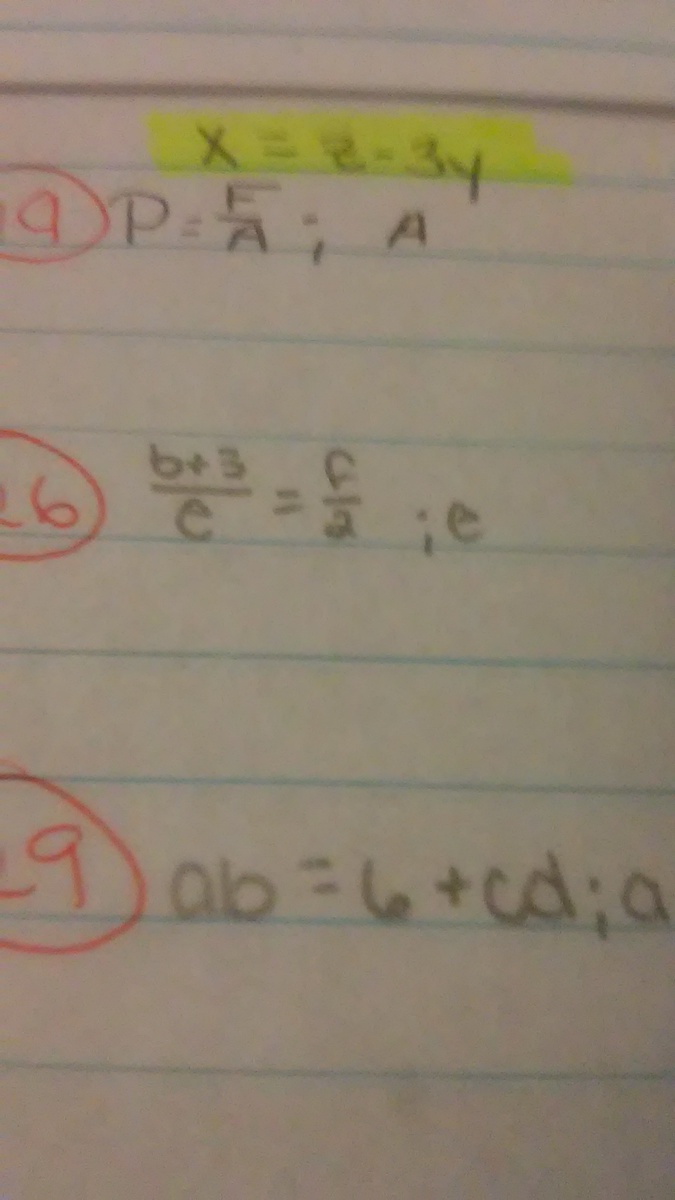 x = z - 3y
19 P = F/A ; A
26 b+3/e = f/2 ; e
29 ab = 6 + cd ; a